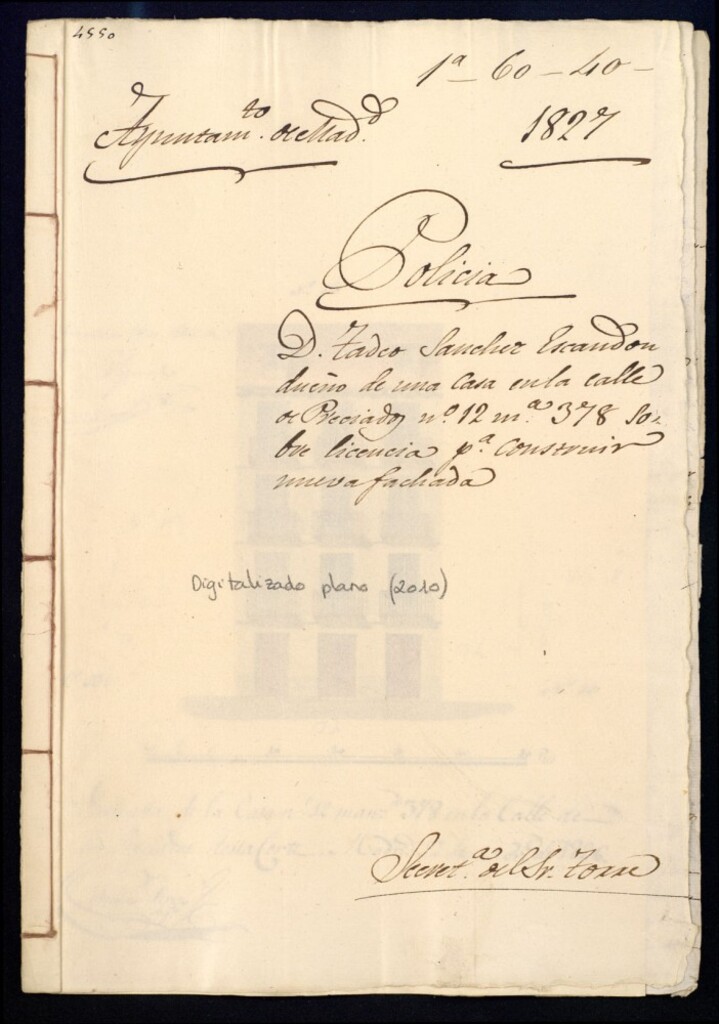 4550
1ª - 60 - 40 -
Ayuntam.to de Mad.d
1827
Policia
D. Tadeo Sanchez Escandon
dueño de una Casa en la calle
de Preciados nº. 12 m.ª 378 so-
bre licencia p.ª construir
nueva fachada
Digitalizado plano (2010)
de la Casa nº 12 manz.ª 378 en la Calle de
Secret.ª del Sr. Torre